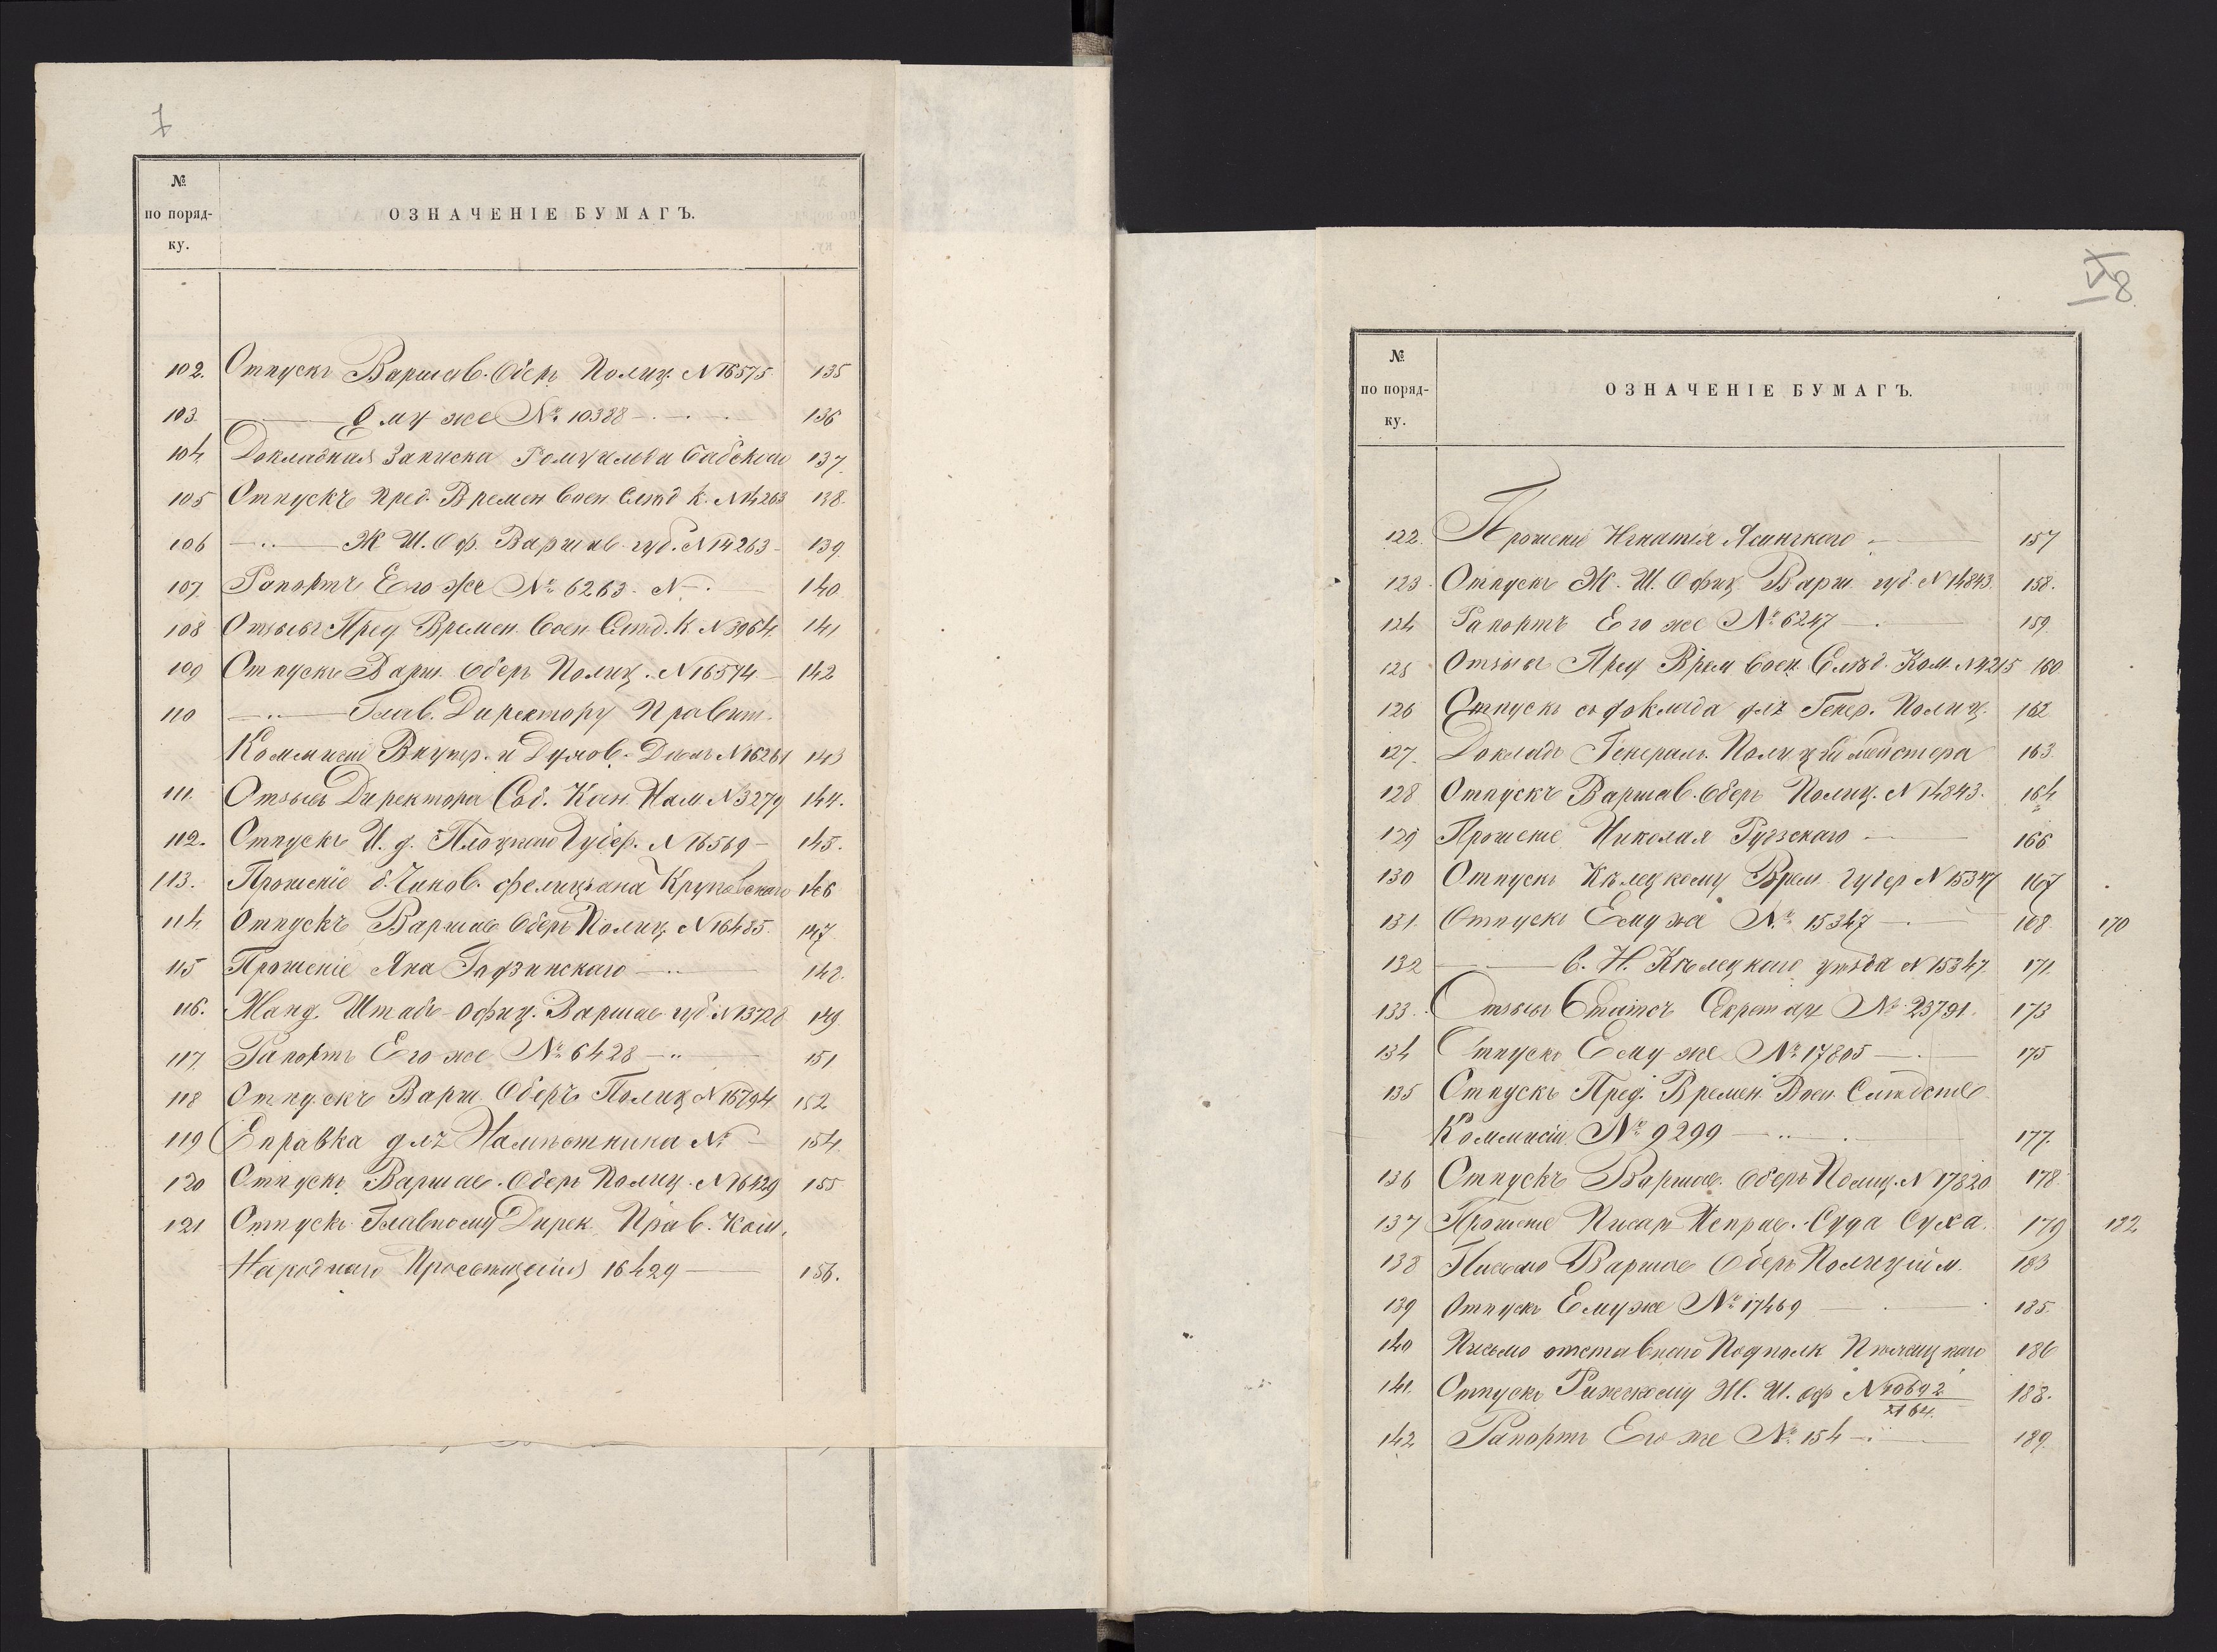 №
по поряд-
ку.
ОЗНАЧЕНІЕ БУМАГЪ.
102. Отпускъ Варшав. Оберъ Полиц. N 16575 135
103. Ему же № 10388 136
104 Докладная Записка Ромуальда 137
105 Отпускъ Пред. Времен Воен Слѣд К. N 14263 138.
106 Ж. Ш. Оф. Варшав. губ. N 14263 139
107. Рапортъ Его же № 6263 140
108 Отзывъ Пред Времен Воен Слѣд. К. N 3964. 141
109 Отпускъ Варш. Оберъ Полиц. N 16574 142
110 Глав. Директору Правит.
Коммисіи Внутр. и Духов. Дѣлъ N 16261 143
111. Отзывъ Директора Соб. Кан. Нам. N 3279 144.
112. Отпускъ И. д. Плоцкаго Губер. N 16569 145.
113. Прошеніе б. Чинов. Фелиціана Круповскаго 146
114 Отпускъ Варшав Оберъ Полиц. N 16485. 147
115 Прошеніе Яна 148.
116. Жанд. Штабъ-Офиц. Варшав губ. N 13728 149
117 Рапортъ Его же № 6428 151
118 Отпускъ Варш. Оберъ Полиц N 16794 152
119 Справка для Намѣстника № 154.
120 Отпускъ Варшав. Оберъ Полиц. N 16429 155
121 Отпускъ Главному Дирек. Прав. Ком.
Народнаго Просвѣщенія 16429 156.
8
№
по поряд-
ку.
ОЗНАЧЕНІЕ БУМАГЪ.
122. Прошеніе Игнатія Ясинскаго 157
123. Отпускъ Ж. Ш. Офиц. Варш. губ. N 14843. 158.
124 Рапортъ Его же № 6247 159
125 Отзывъ Пред Врем Воен. Слѣд. Ком. N 4215 160
126 Отпускъ съ доклада для Генер. Полиц. 162
127. Докладъ Генералъ Полицiймейстера 163.
128 Отпускъ Варшав. Оберъ Полиц. N 14843. 164
129 Прошеніе Николая 166
130 Отпускъ Кѣлецкому Врем. Губер N 15347 167
131. Отпускъ Ему же № 15347 168 170
132 В. Н. Кѣлецкаго уѣзда N 15347. 171.
133. Отзывъ Статсъ Секретаря № 23791. 173
134 Отпускъ Ему же № 17805 175
135 Отпускъ Пред. Времен. Воен. Слѣдств
Коммисіи № 9299 177.
136 Отпускъ Варшав. Оберъ Полиц. N 17820 178.
137 Прошеніе Писаря Исправ. Суда Суха. 179 182
138 Письмо Варшав Оберъ Полицiйм. 183
139 Отпускъ Ему же № 17469 185.
140 Письмо отставнаго Подполк 186
141. Отпускъ Рижскому Ж. Ш. Оф N 10692 188.
2164.
142 Рапортъ Его же № 154 189.